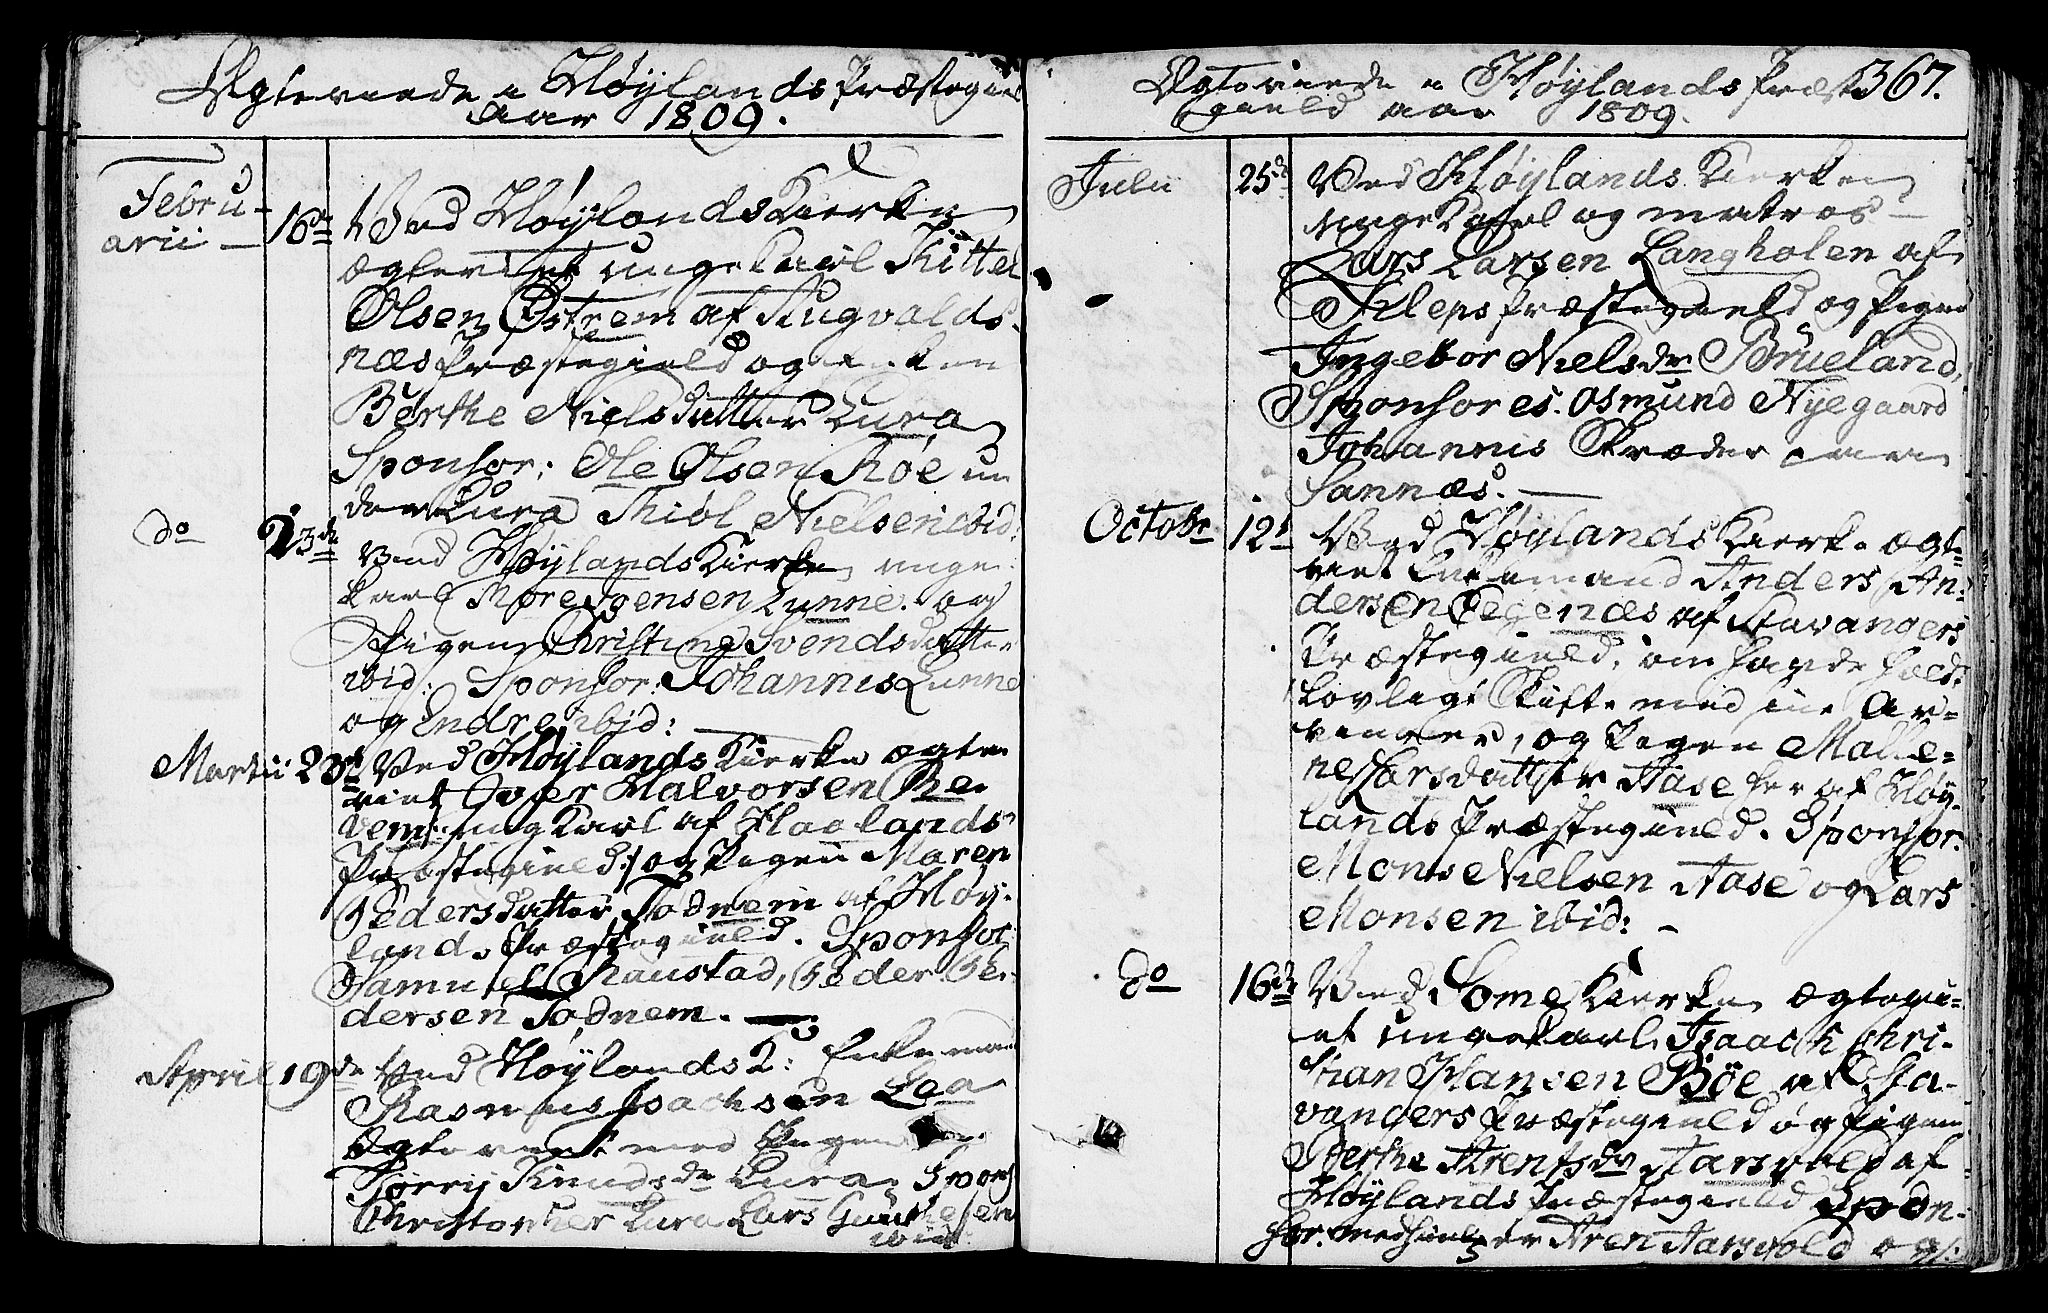 Ægteviede i Høylands Præstegield
Aar 1809.
Febru-
arii — 16de Ved Høylands Kierke
ægteviet unge Karl Kittel
Olsen Østrem af Augvalds-
næs Præstegield og Enken
Berthe Nielsdatter Lura
Sponsor: Ole Olsen Høe un
der Lura Thiøl Nielsen ibid:
do 23de Ved Høylands Kierke unge
Karl Tore Jensen Lunne og
Pigen Christine Svendsdatter
ibid: Sponsor: Johannes Lunne
og Endre ibid:
Martii 23de Ved Høylands Kierke ægte-
viet Iver Halvorsen Re-
vem, ung Karl af Haalands
Præstegield og Pigen Maren
Pedersdatter Todnem af Høy-
lands Præstegield. Sponsor
Samuel Raustad, Peder Pe-
dersen Todnem.
April 19de Ved Høylands K: Enkemand
Rasmus Isachsen Lea
Ægteviet med Pigen
Tørrij Knudsdr Lura. Spons
Christopher Lura Lars
ibid
Ægteviede i Høylands Præste 367.
gield aar 1809.
Julii 25de Ved Høylands Kierke
unge Karl og matros
Lars Larsen Langholen af
Kleps Præstegield og Pigen
Ingebor Nielsdr Brueland,
Sponsores. Osmund Nyegaard
Johannes Skræder
Sannæs.
Octobr 12te Ved Høylands Kierke ægte
viet Enkemand Anders An-
dersen Tegenæs af Stavangers
Præstegield, som havde holdt
lovligt Skifte med sine Ar-
vinger, og Pigen Malle-
ne Larsdatter Aase her af Høy-
lands Præstegield. Sponsor.
Mons Nielsen Aase og Lars
Monsen ibid:
do 16de Ved Some Kierke Ægtevi-
et unge Karl Isaach Chri-
stian Hansen Bøe af Sta-
vangers Præstegield og Pigen
Berthe Arentsdr Aarsvold af
Høylands Præstegield Spon-
sor. Aren Aarsvold og